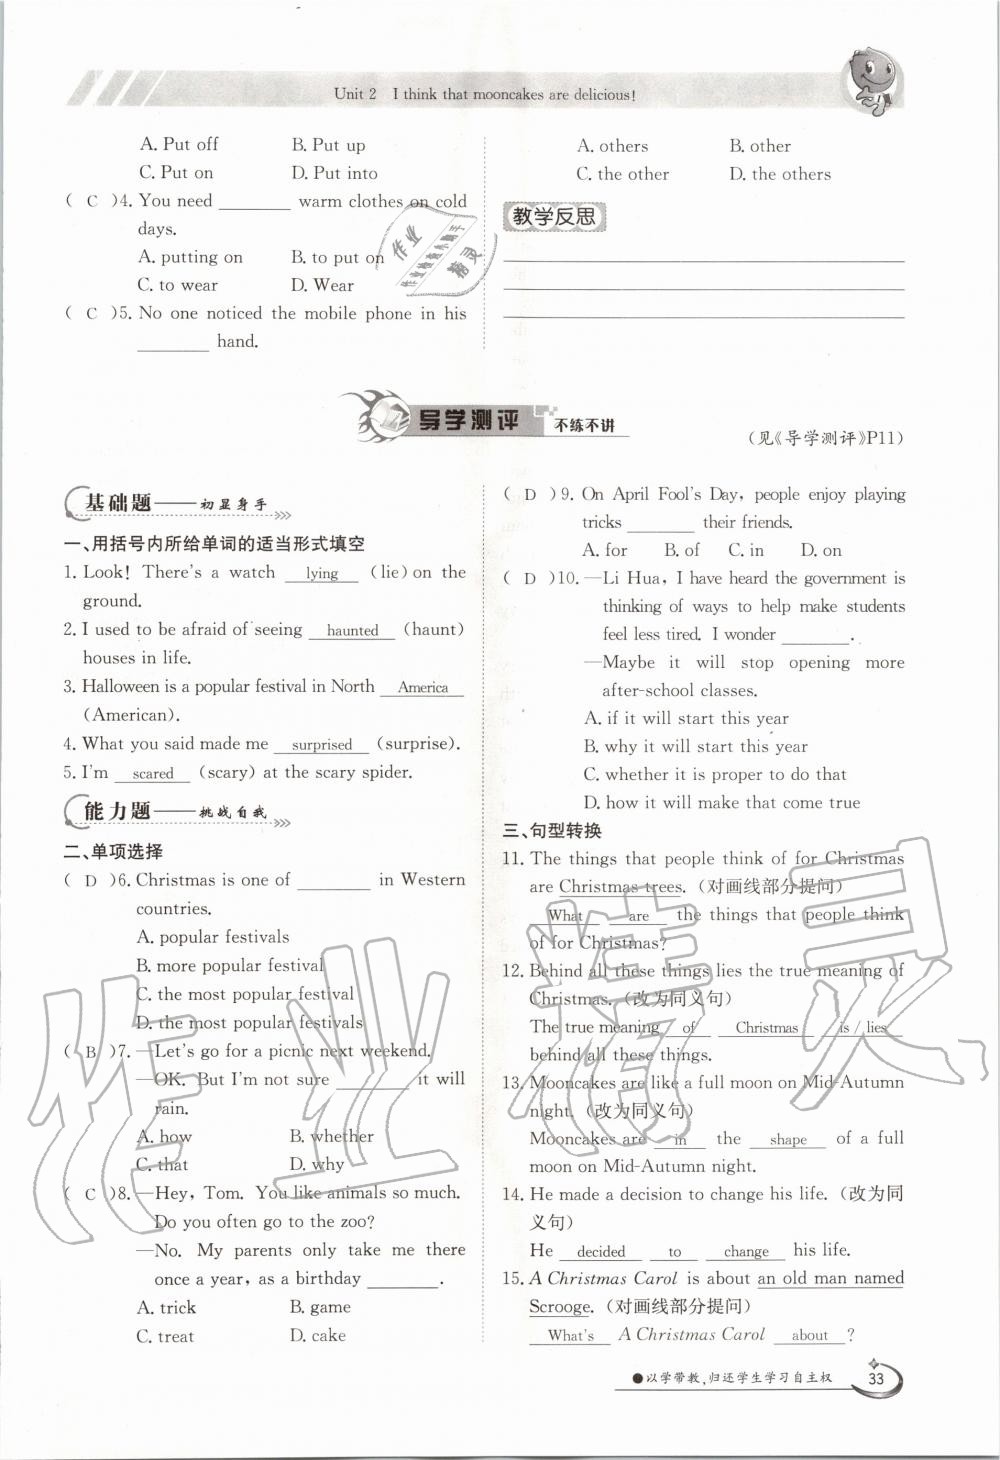 Unit 2 I think that mooncakes are delicious!
A. Put off B. Put up
C. Put on D. Put into
( C )4. You need ________ warm clothes on cold
days.
A. putting on B. to put on
C. to wear D. Wear
( C )5. No one noticed the mobile phone in his
________ hand.
A. others B. other
C. the other D. the others
教学反思
导学测评 不练不讲
(见《导学测评》P11)
基础题——初显身手
一、用括号内所给单词的适当形式填空
1. Look! There's a watch lying (lie) on the
ground.
2. I used to be afraid of seeing haunted (haunt)
houses in life.
3. Halloween is a popular festival in North America
(American).
4. What you said made me surprised (surprise).
5. I'm scared (scary) at the scary spider.
能力题——挑战自我
二、单项选择
( D )6. Christmas is one of ________ in Western
countries.
A. popular festivals
B. more popular festival
C. the most popular festival
D. the most popular festivals
( B )7. —Let's go for a picnic next weekend.
—OK. But I'm not sure ________ it will
rain.
A. how B. whether
C. that D. why
( C )8. —Hey, Tom. You like animals so much.
Do you often go to the zoo?
—No. My parents only take me there
once a year, as a birthday ________.
A. trick B. game
C. treat D. cake
( D )9. On April Fool's Day, people enjoy playing
tricks ________ their friends.
A. for B. of C. in D. on
( D )10. —Li Hua, I have heard the government is
thinking of ways to help make students
feel less tired. I wonder ________.
—Maybe it will stop opening more
after-school classes.
A. if it will start this year
B. why it will start this year
C. whether it is proper to do that
D. how it will make that come true
三、句型转换
11. The things that people think of for Christmas
are Christmas trees. (对画线部分提问)
What are the things that people think
of for Christmas?
12. Behind all these things lies the true meaning of
Christmas. (改为同义句)
The true meaning of Christmas is / lies
behind all these things.
13. Mooncakes are like a full moon on Mid-Autumn
night. (改为同义句)
Mooncakes are in the shape of a full
moon on Mid-Autumn night.
14. He made a decision to change his life. (改为同
义句)
He decided to change his life.
15. A Christmas Carol is about an old man named
Scrooge. (对画线部分提问)
What's A Christmas Carol about ?
●以学带教,归还学生学习自主权 33
作业精灵